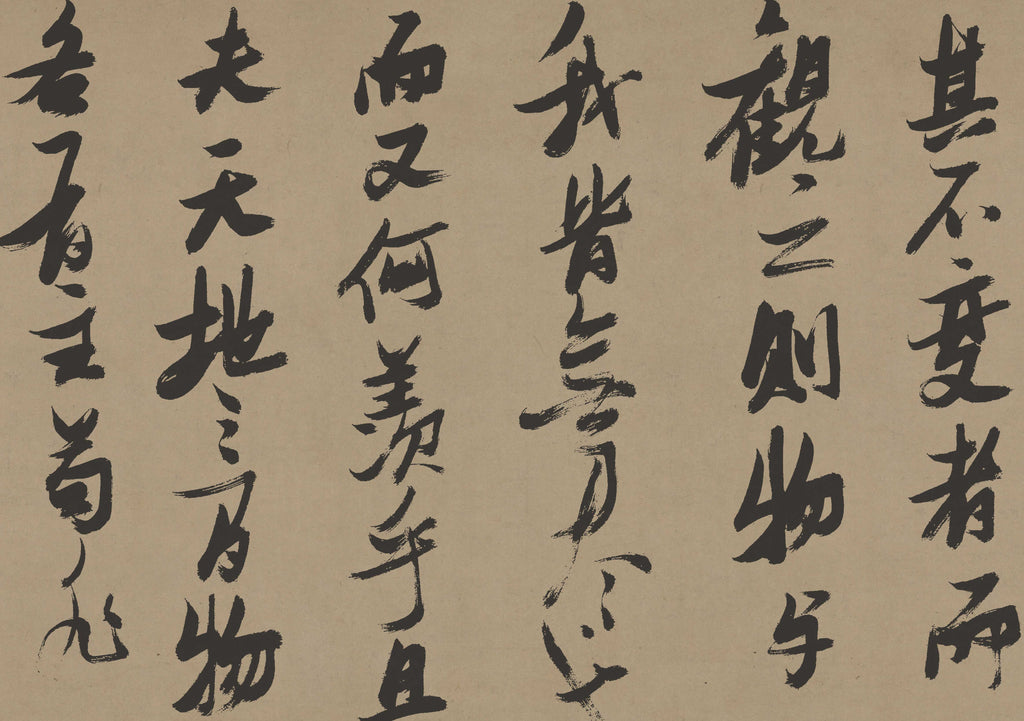 其不變者而
觀之則物與
我皆無盡也
而又何羨乎且
夫天地之間物
各有主苟非